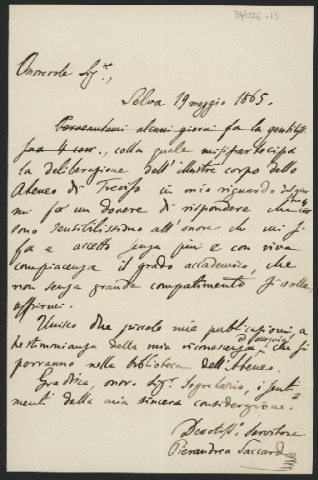 34/1002-13
Onorevole Sig.re,
Selva 19 maggio 1865.
Pervenutami alcuni giorni fa la gentiliss.
sua 4 corr., colla quale mi si partecipa
la deliberazione dell'illustre corpo dello
Ateneo di Treviso in mio riguardo
mi fo un dovere di rispondere che
sono sentitissimo all'onore che mi si
fa e accetto senza più e con viva
compiacenza il grado accademico, che
non senza grande compatimento si volle
offrirmi.
Unisco due piccole mie pubblicazioni, a
testimonianza della mia riconoscenza, che si
porranno nella biblioteca dell'Ateneo.
Gradisca, onor. Sig. Segretario, i senti-
menti della mia sincera considerazione.
Devotiss. Servitore
Pierandrea Saccardo